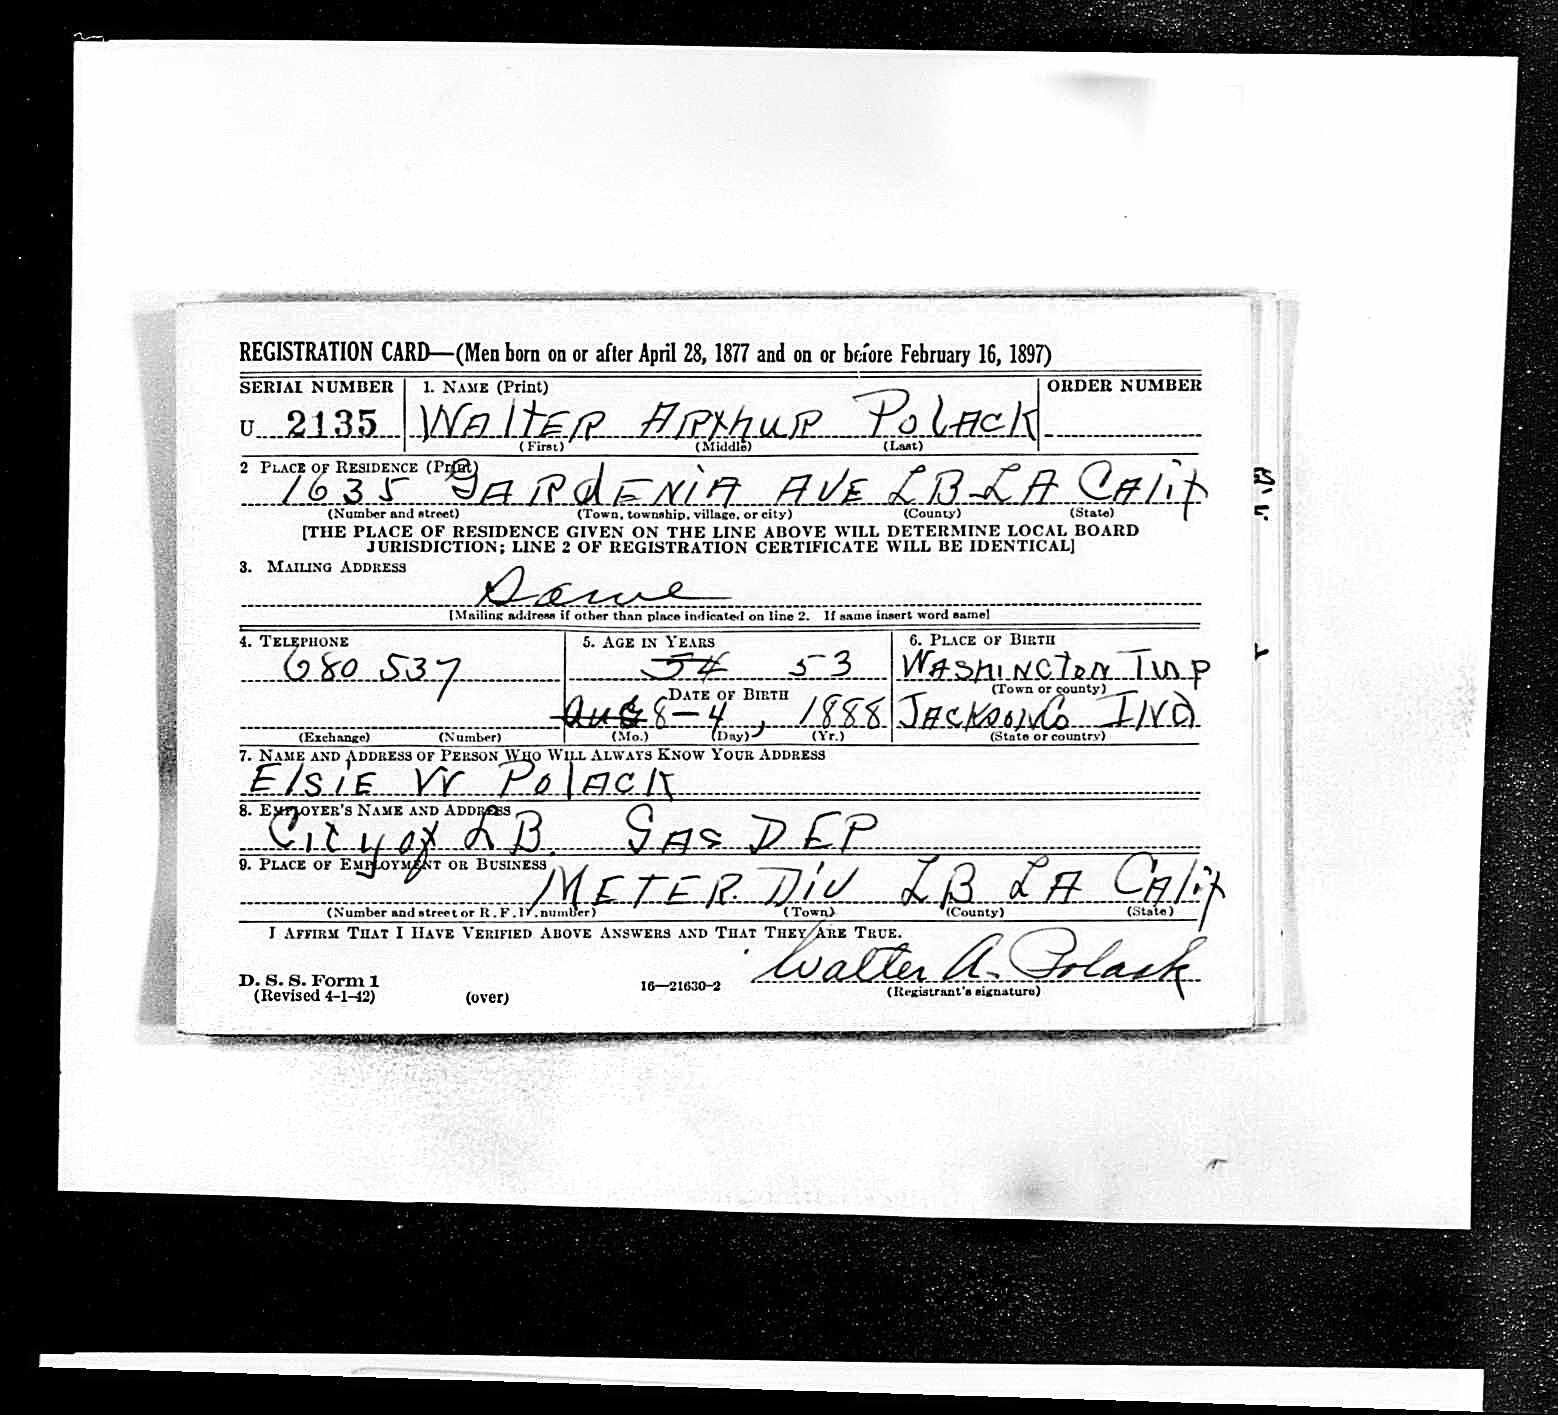 REGISTRATION CARD—(Men born on or after April 28, 1877 and on or before February 16, 1897)
SERIAL NUMBER 1. NAME (Print) ORDER NUMBER
U 2135 WALTER ARTHUR POLACK
(First) (Middle) (Last)
2 PLACE OF RESIDENCE (Print)
1635 GARDENIA AVE LB LA CALIF
(Number and street) (Town, township, village, or city) (County) (State)
[THE PLACE OF RESIDENCE GIVEN ON THE LINE ABOVE WILL DETERMINE LOCAL BOARD
JURISDICTION; LINE 2 OF REGISTRATION CERTIFICATE WILL BE IDENTICAL]
3. MAILING ADDRESS
Same
[Mailing address if other than place indicated on line 2. If same insert word same]
4. TELEPHONE 5. AGE IN YEARS 6. PLACE OF BIRTH
680 537 54 53 WASHINGTON TWP
DATE OF BIRTH (Town or county)
Aug 8-4, 1888 JACKSON CO IND
(Exchange) (Number) (Mo.) (Day) (Yr.) (State or country)
7. NAME AND ADDRESS OF PERSON WHO WILL ALWAYS KNOW YOUR ADDRESS
ELSIE W POLACK
8. EMPLOYER'S NAME AND ADDRESS
City of LB. GAS DEP
9. PLACE OF EMPLOYMENT OR BUSINESS
METER DIV LB LA CALIF
(Number and street or R. F. D. number) (Town) (County) (State)
I AFFIRM THAT I HAVE VERIFIED ABOVE ANSWERS AND THAT THEY ARE TRUE.
Walter A. Polack
D. S. S. Form 1
(Revised 4-1-42) (over) 16—21630-2 (Registrant's signature)